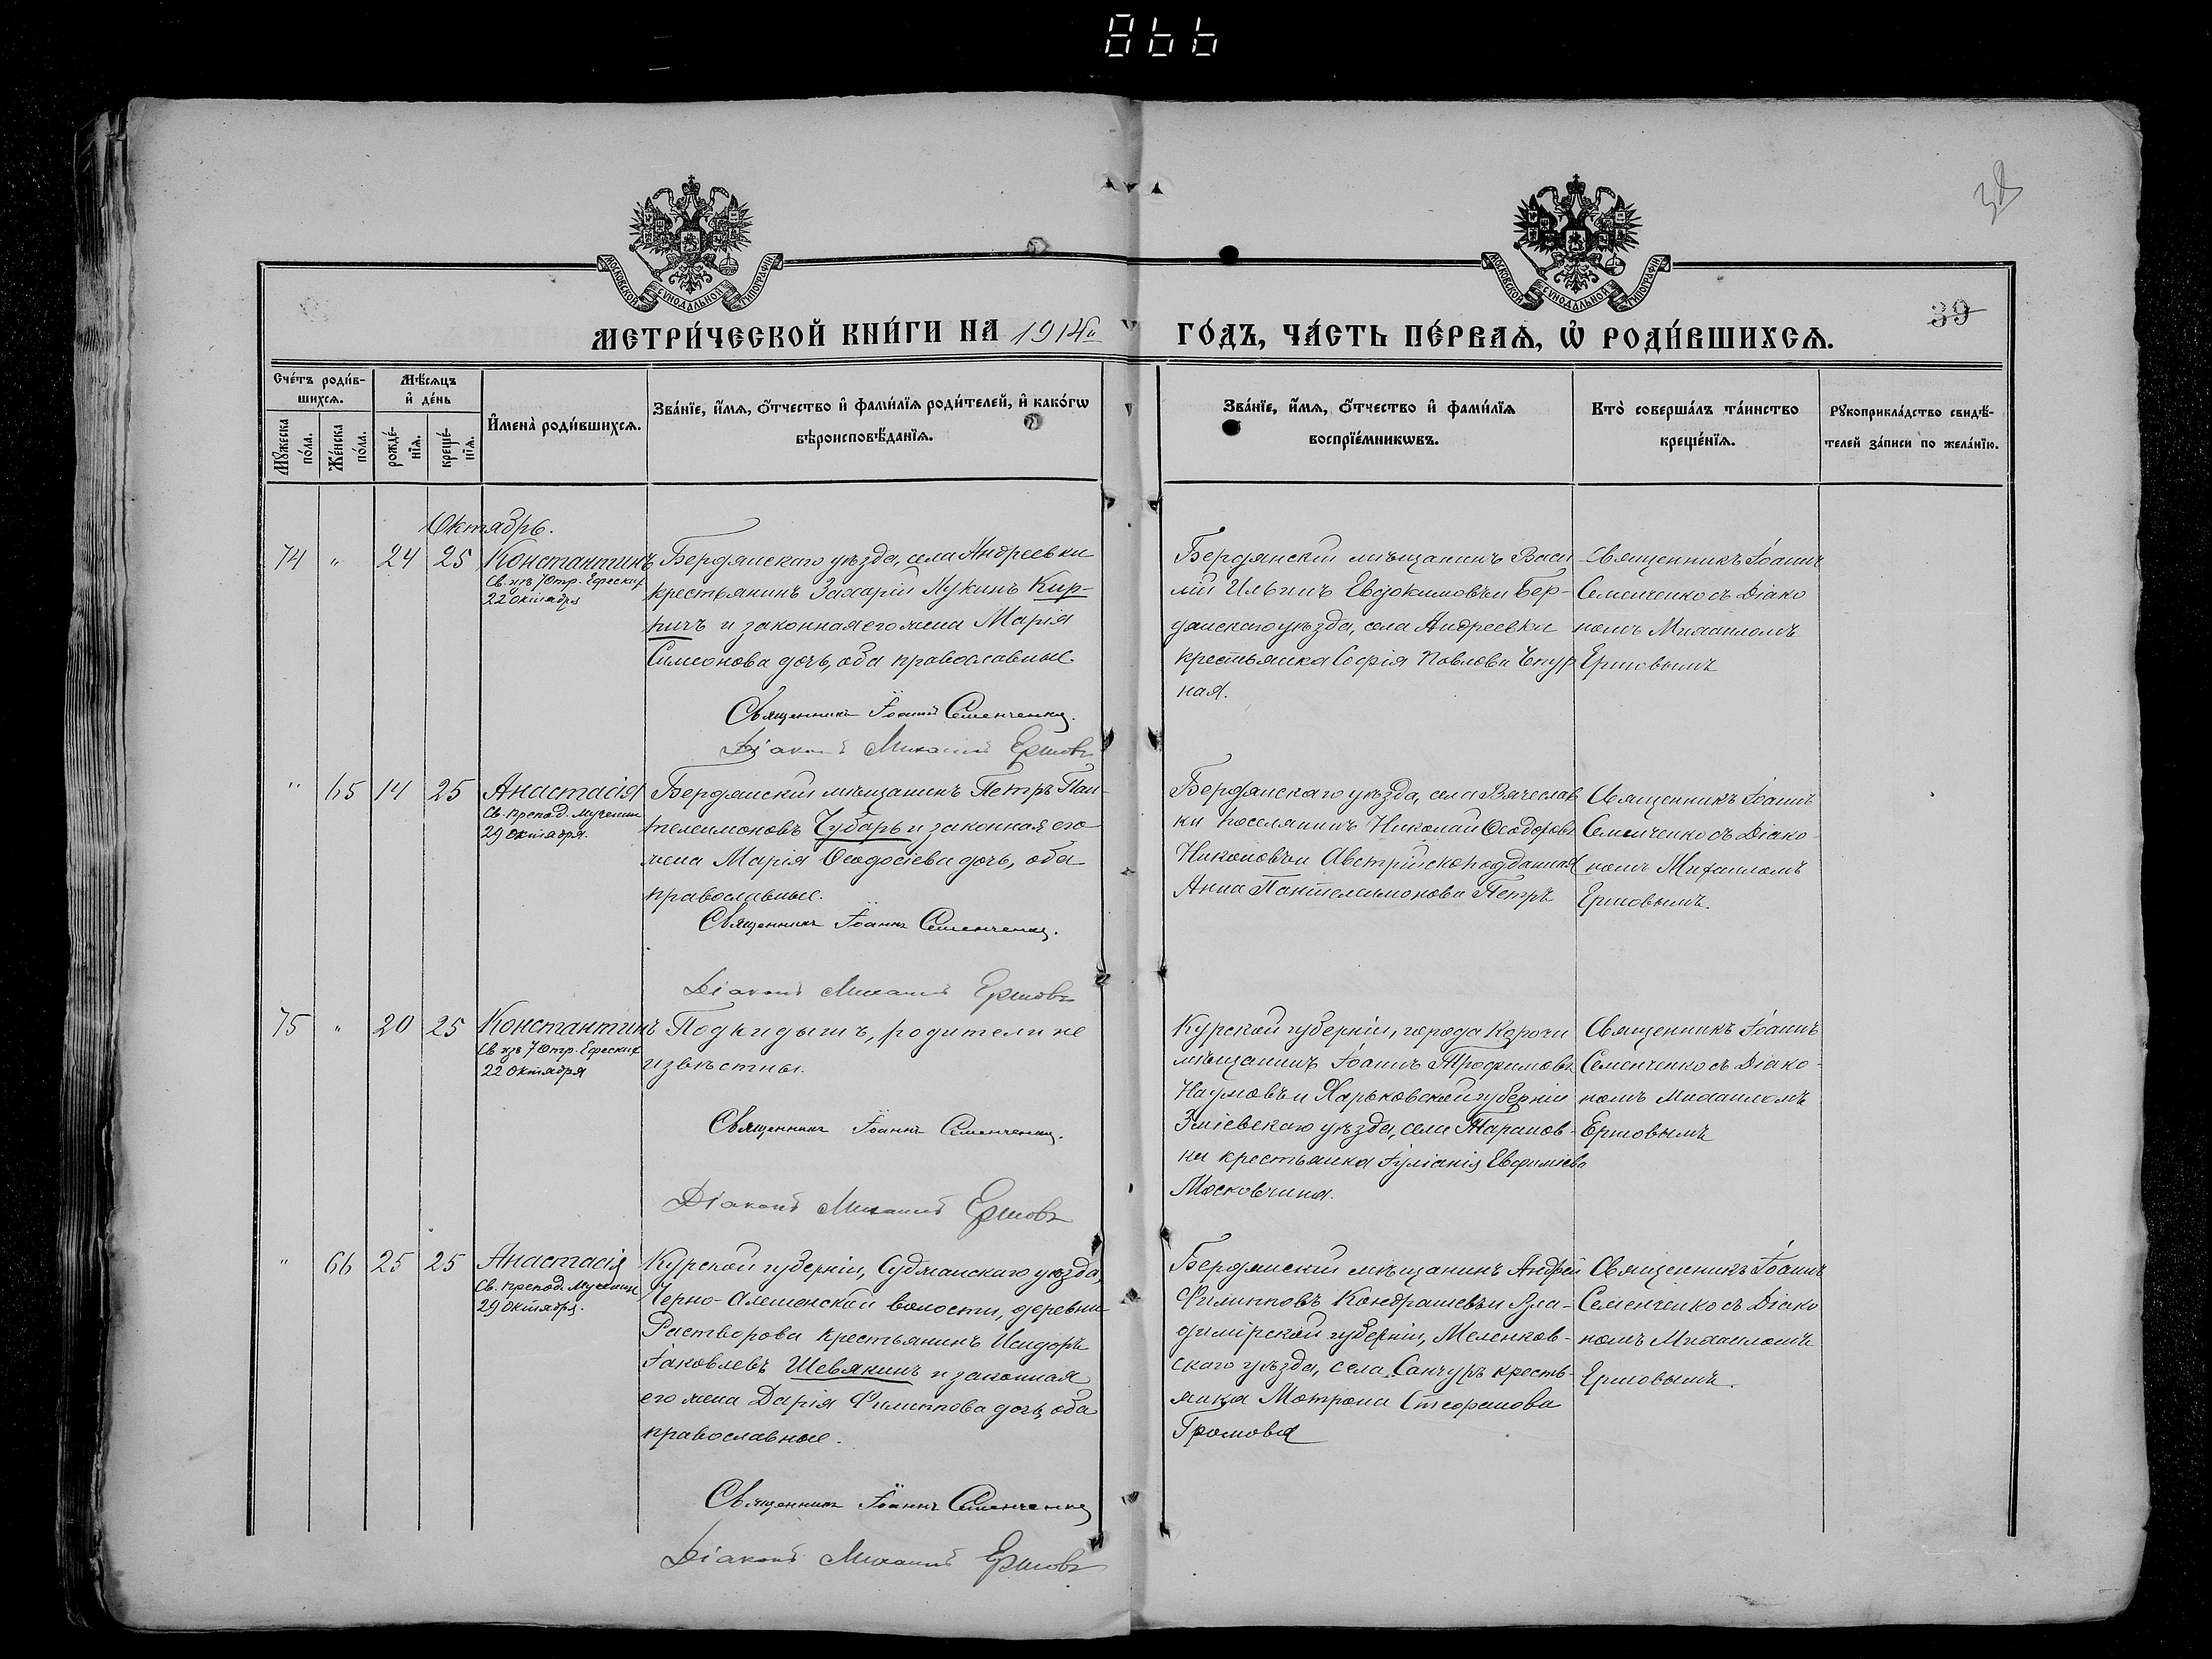 866
38
39
МОСКОВСКОЙ СУНОДАЛЬНОЙ ТИПОГРАФІИ
МОСКОВСКОЙ СУНОДАЛЬНОЙ ТИПОГРАФІИ
МЕТРИ́ЧЕСКОЙ КНИ́ГИ НА 1914й ГО́ДЪ, ЧА́СТЬ ПЕ́РВАѦ, Ѡ҆ РОДИ́ВШИХСѦ.
Сче́тъ роди́в-
шихсѧ.
Мꙋ́жеска по́ла.
Же́нска по́ла.
Мѣ́сѧцъ
и҆ де́нь
рожде́-
нїѧ.
креще́-
нїѧ.
И҆мена̀ роди́вшихсѧ.
Зва́нїе, и҆́мѧ, ѻ҆́тчество и҆ фами́лїѧ роди́телей, и҆ како́гѡ
вѣроисповѣ́данїѧ.
Зва́нїе, и҆́мѧ, ѻ҆́тчество и҆ фами́лїѧ
воспрїе́мникѡвъ.
Кто̀ соверша́лъ та́инство
креще́нїѧ.
Рꙋкоприкла́дство свидѣ́-
телей за́писи по жела́нїю.
Октябрь.
74 " 24 25 Константинъ
Св. изъ 7 Отр. Ефескихъ
22 Октября
Бердянскаго уѣзда, села Андреевки
крестьянинъ Захарій Лукинъ Кир-
пичъ и законная его жена Марія
Симеонова дочь, оба православные.
Священникъ Іоаннъ Семенченко.
Діаконъ Михаилъ Ершовъ
Бердянскій мѣщанинъ Васи
лій Ильинъ Евдокимовъ и Бер-
дянскаго уѣзда, села Андреевки
крестьянка Софія Павлова Чепур
ная.
Священникъ Іоаннъ
Семенченко съ Діако
номъ Михаиломъ
Ершовымъ
" 65 14 25 Анастасія
Св. препод. мучениц
29 Октября.
Бердянскій мѣщанинъ Петръ Пан-
телеимоновъ Чубарь и законная его
жена Марія Ѳеодосіева дочь, оба
православные.
Священникъ Іоаннъ Семенченко.
Діаконъ Михаилъ Ершовъ
Бердянскаго уѣзда, села Вячеслав
ки поселянинъ Николай Ѳеодоровъ
Никоновъ и Австрійскоподданная
Анна Пантелеимонова Петръ
Священникъ Іоаннъ
Семенченко съ Діако-
номъ Михаиломъ
Ершовымъ.
75 " 20 25 Константинъ
Св изъ 7 Отр. Ефескихъ
22 Октября
Подкидышъ, родители не
извѣстны.
Священникъ Іоаннъ Семенченко.
Діаконъ Михаилъ Ершовъ
Курской губерніи, города Корочи
мѣщанинъ Іоаннъ Трофимовъ
Наумовъ и Харьковской губерніи
Зміевскаго уѣзда, села Таранов-
ки крестьянка Іуліанія Евфиміева
Московчина.
Священникъ Іоаннъ
Семенченко съ Діако-
номъ Михаиломъ
Ершовымъ
" 66 25 25 Анастасія
Св. препод. мучениц
29 Октября.
Курской губерніи, Суджанскаго уѣзда,
Черно-Олешенской волости, деревни
Растворова крестьянинъ Исидоръ
Іаковлевъ Шевякинъ и законная
его жена Дарія Филиппова дочь, оба
православные.
Священникъ Іоаннъ Семенченко
Діаконъ Михаилъ Ершовъ
Бердянскій мѣщанинъ Андрей
Филипповъ Кондрашевъ и Вла-
димірской губерніи, Меленков-
скаго уѣзда, села Санчуръ кресть-
янка Матрона Стефанова
Громова
Священникъ Іоаннъ
Семенченко съ Діако
номъ Михаиломъ
Ершовымъ.